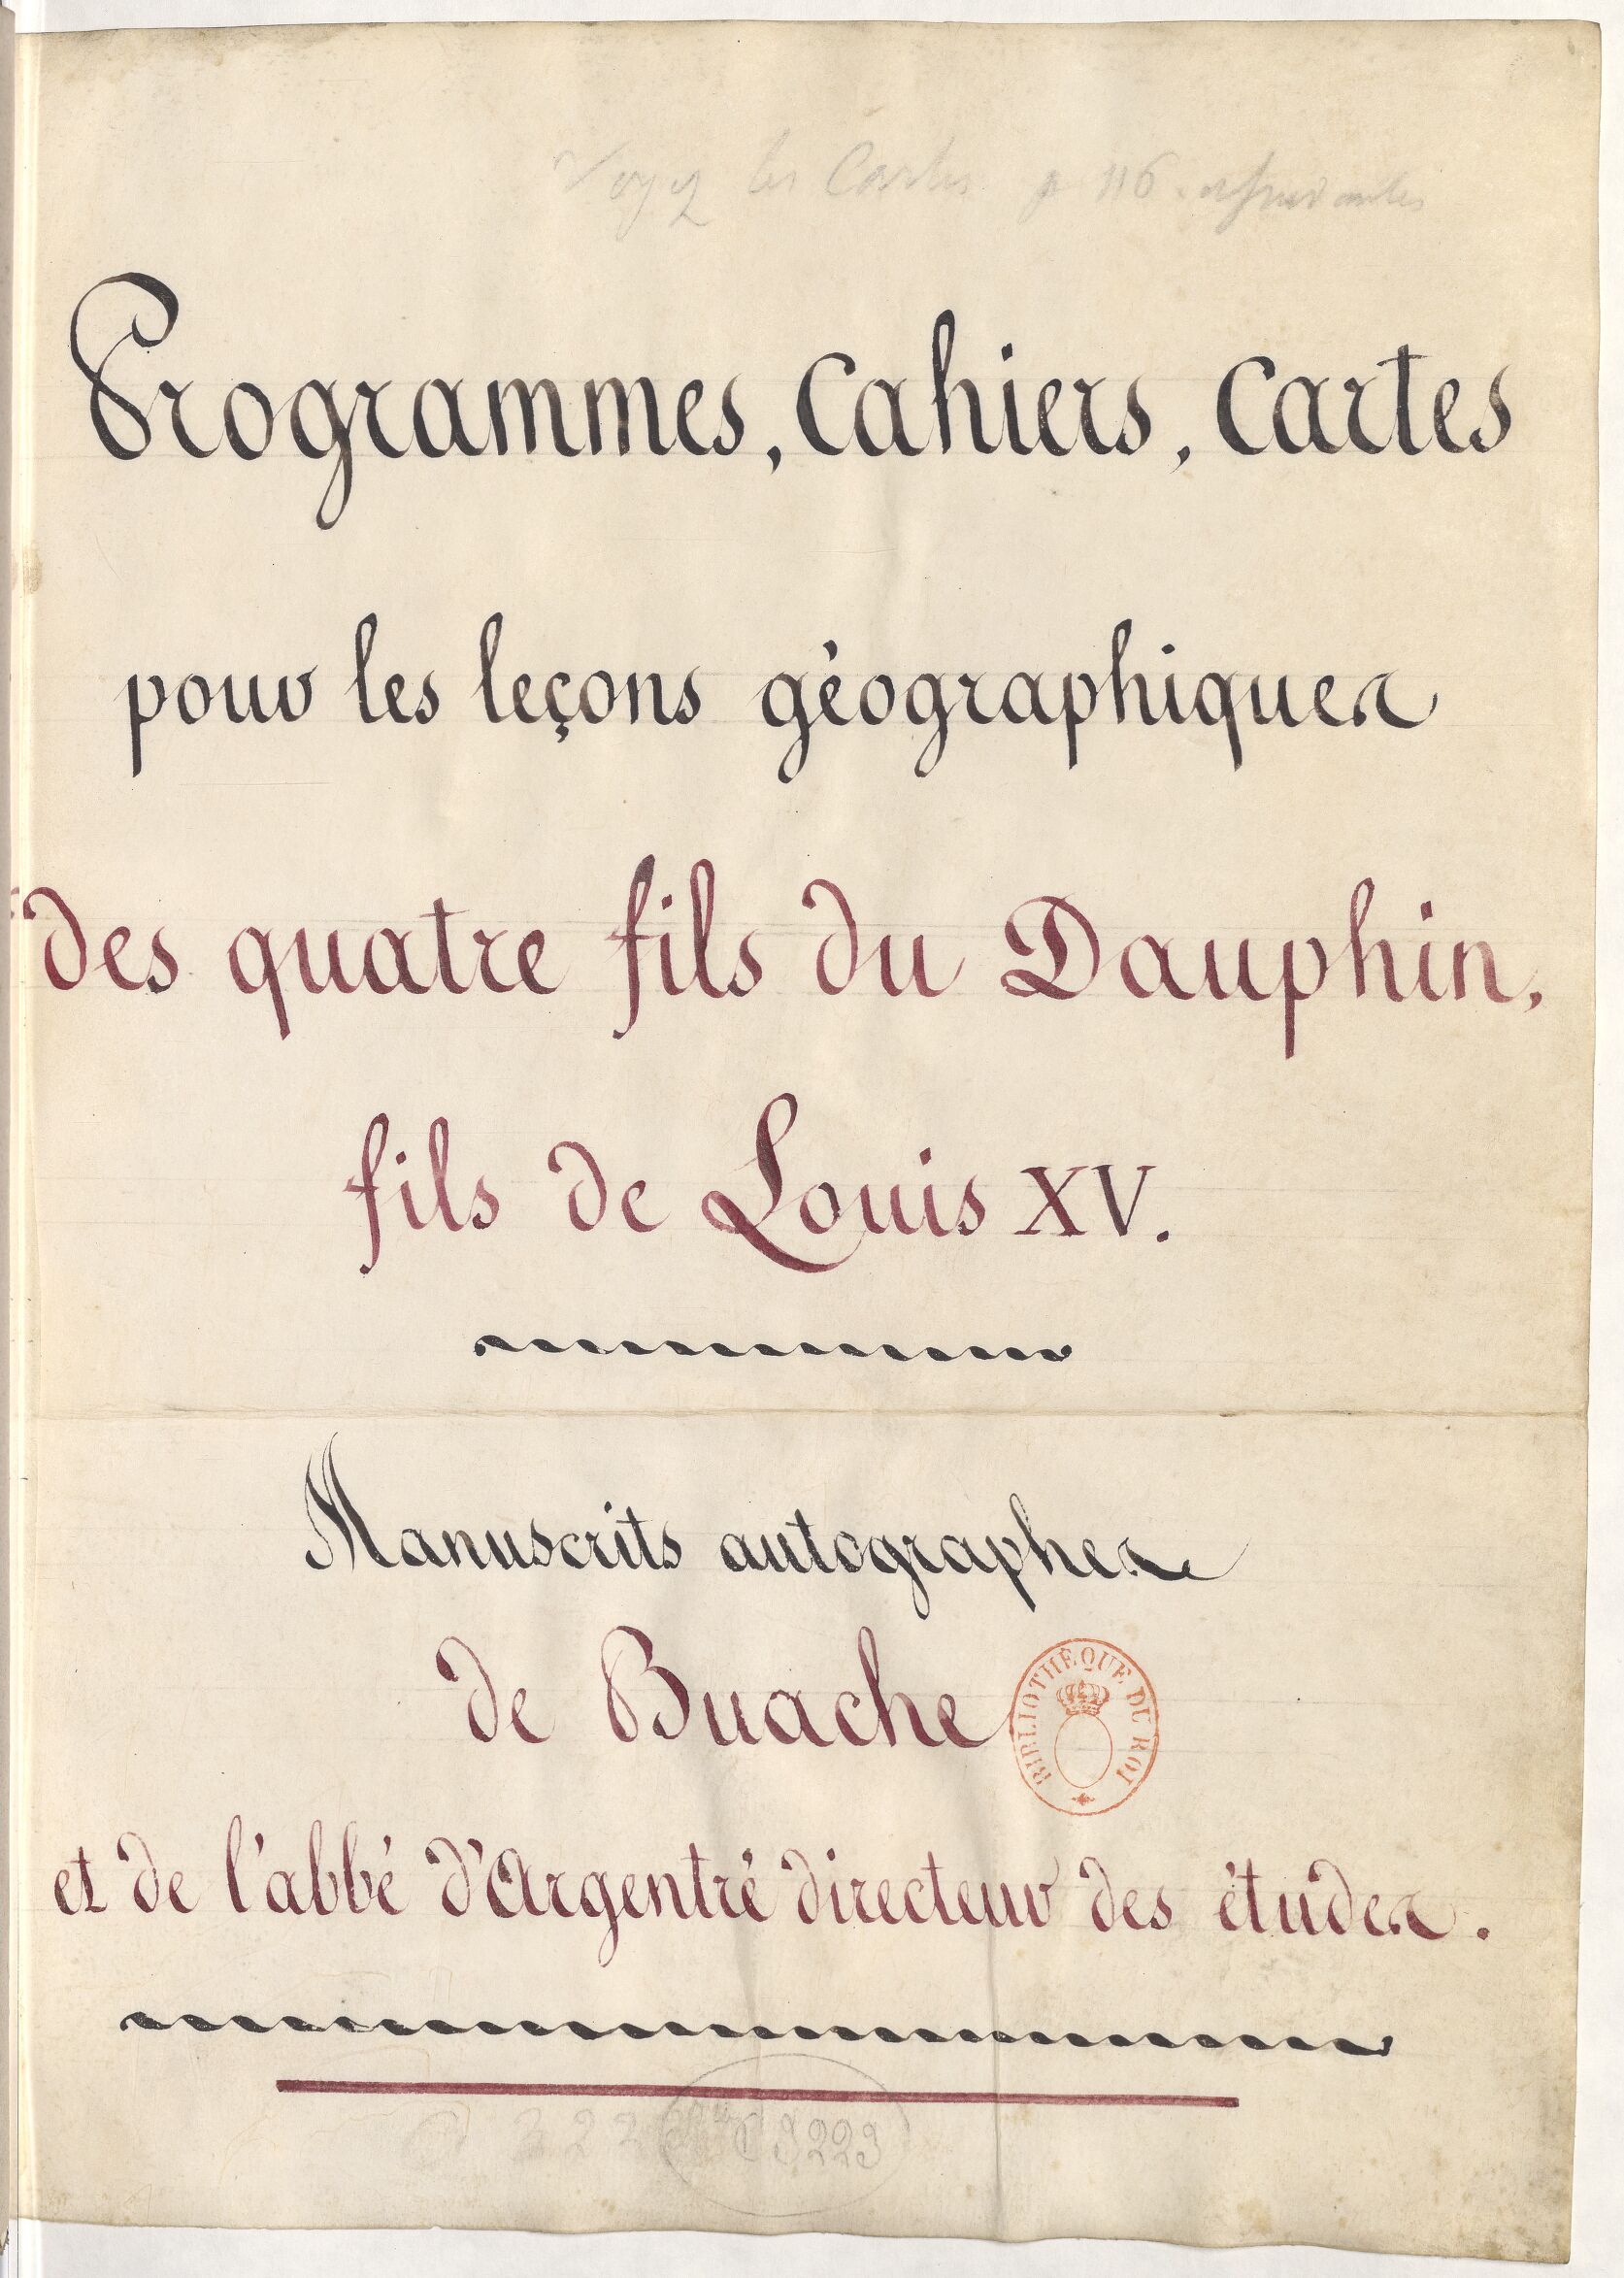 Voyez les Cartes p 116. et suivantes
Programmes, Cahiers, Cartes
pour les leçons géographiques
des quatre fils du Dauphin,
fils de Louis XV.
Manuscrits autographes
de Buache
BIBLIOTHÈQUE DU ROI
et de l'abbé d'Argentré directeur des études.